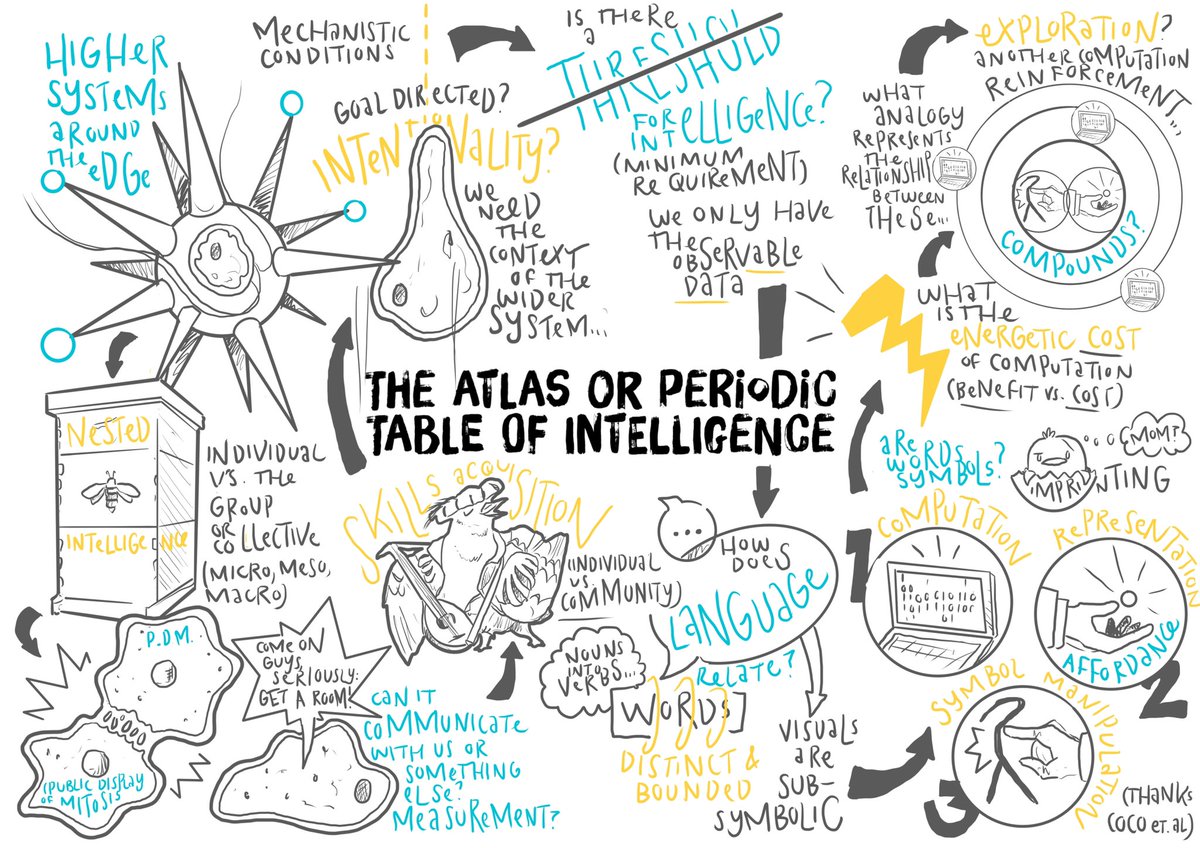 HIGHER
SYSTEMS
AROUND
THE EDGE
MECHANISTIC
CONDITIONS
GOAL DIRECTED?
INTENTIONALITY?
WE
NEED
THE
CONTEXT
OF THE
WIDER
SYSTEM...
IS THERE
A
THRESHOLD
FOR
INTELLIGENCE?
(MINIMUM
REQUIREMENT)
WE ONLY HAVE
THE
OBSERVABLE
DATA
EXPLORATION?
ANOTHER COMPUTATION
REINFORCEMENT...
WHAT
ANALOGY
REPRESENTS
THE
RELATIONSHIP
BETWEEN
THESE...
COMPOUNDS?
WHAT
IS THE
ENERGETIC COST
OF COMPUTATION
(BENEFIT VS. COST)
THE ATLAS OR PERIODIC
TABLE OF INTELLIGENCE
NESTED
INTELLIGENCE
INDIVIDUAL
V'S. THE
GROUP
OR
COLLECTIVE
(MICRO, MESO,
MACRO)
P.D.M.
(PUBLIC DISPLAY
OF MITOSIS
COME ON
GUYS,
SERIOUSLY:
GET A ROOM!
SKILLS ACQUISITION
(INDIVIDUAL
VS.
COMMUNITY)
CAN IT
COMMUNICATE
WITH US OR
SOMETHING
ELSE?
MEASUREMENT?
...
HOW
DOES
LANGUAGE
RELATE?
NOUNS
INTO
VERBS...
[WORDS]
DISTINCT &
BOUNDED
VISUALS
ARE
SUB-
SYMBOLIC
ARE
WORDS
SYMBOLS?
MOM?
IMPRINTING
1
COMPUTATION
REPRESENTATION
AFFORDANCE
2
SYMBOL MANIPULATION
3
(THANKS
COCO ET. AL)